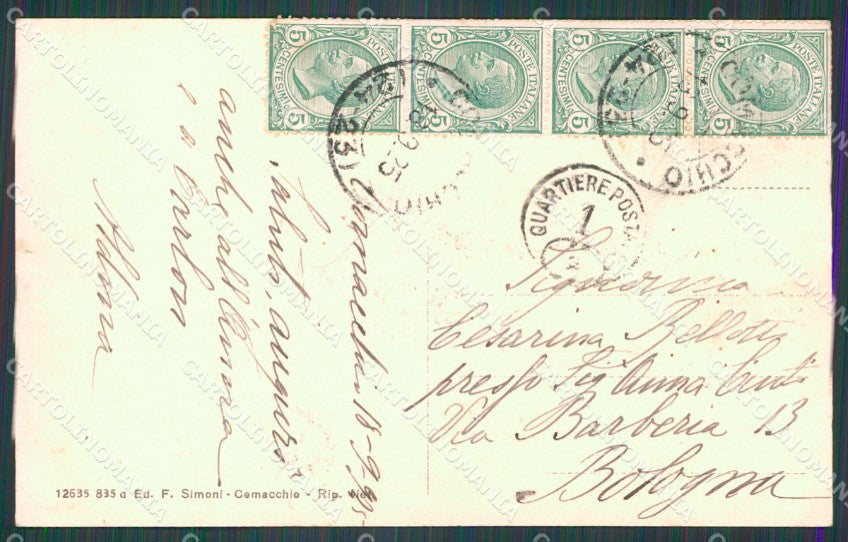 POSTE ITALIANE
5 CENTESIMI 5
POSTE ITALIANE
5 CENTESIMI 5
POSTE ITALIANE
5 CENTESIMI 5
POSTE ITALIANE
5 CENTESIMI 5
COMACCHIO
18.9.25
COMACCHIO
QUARTIERE POSTA
1
Comacchio 18-9-925
Saluti, auguri
anche all'
e a Carlon
Aldona
Signorina
Cesarina Bellotti
presso Sig Anna
Via Barberia 13
Bologna
12635 835 a Ed. F. Simoni - Comacchio - Rip. Viet.
CARTOLINOMANIA